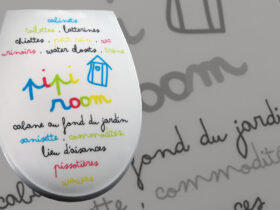 cabinets
toilettes . latterines
chiottes . petit coin . wc
urinoirs . water closets . trone
pipi
room
cabane au fond du jardin
sanisette . commodités
lieu d'aisances
pissotières
room
fond du jardin
commodité
sances